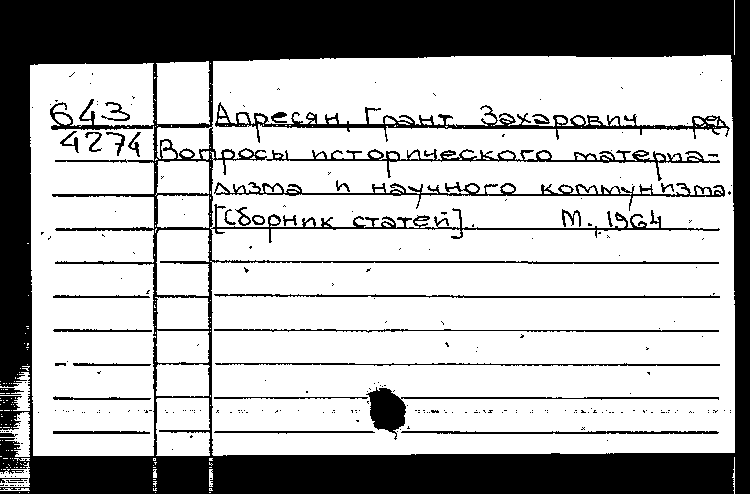 643 Апресян, Грант Захарович, ред.
4274 Вопросы исторического материа=
лизма и научного коммунизма.
[Сборник статей]. М., 1964